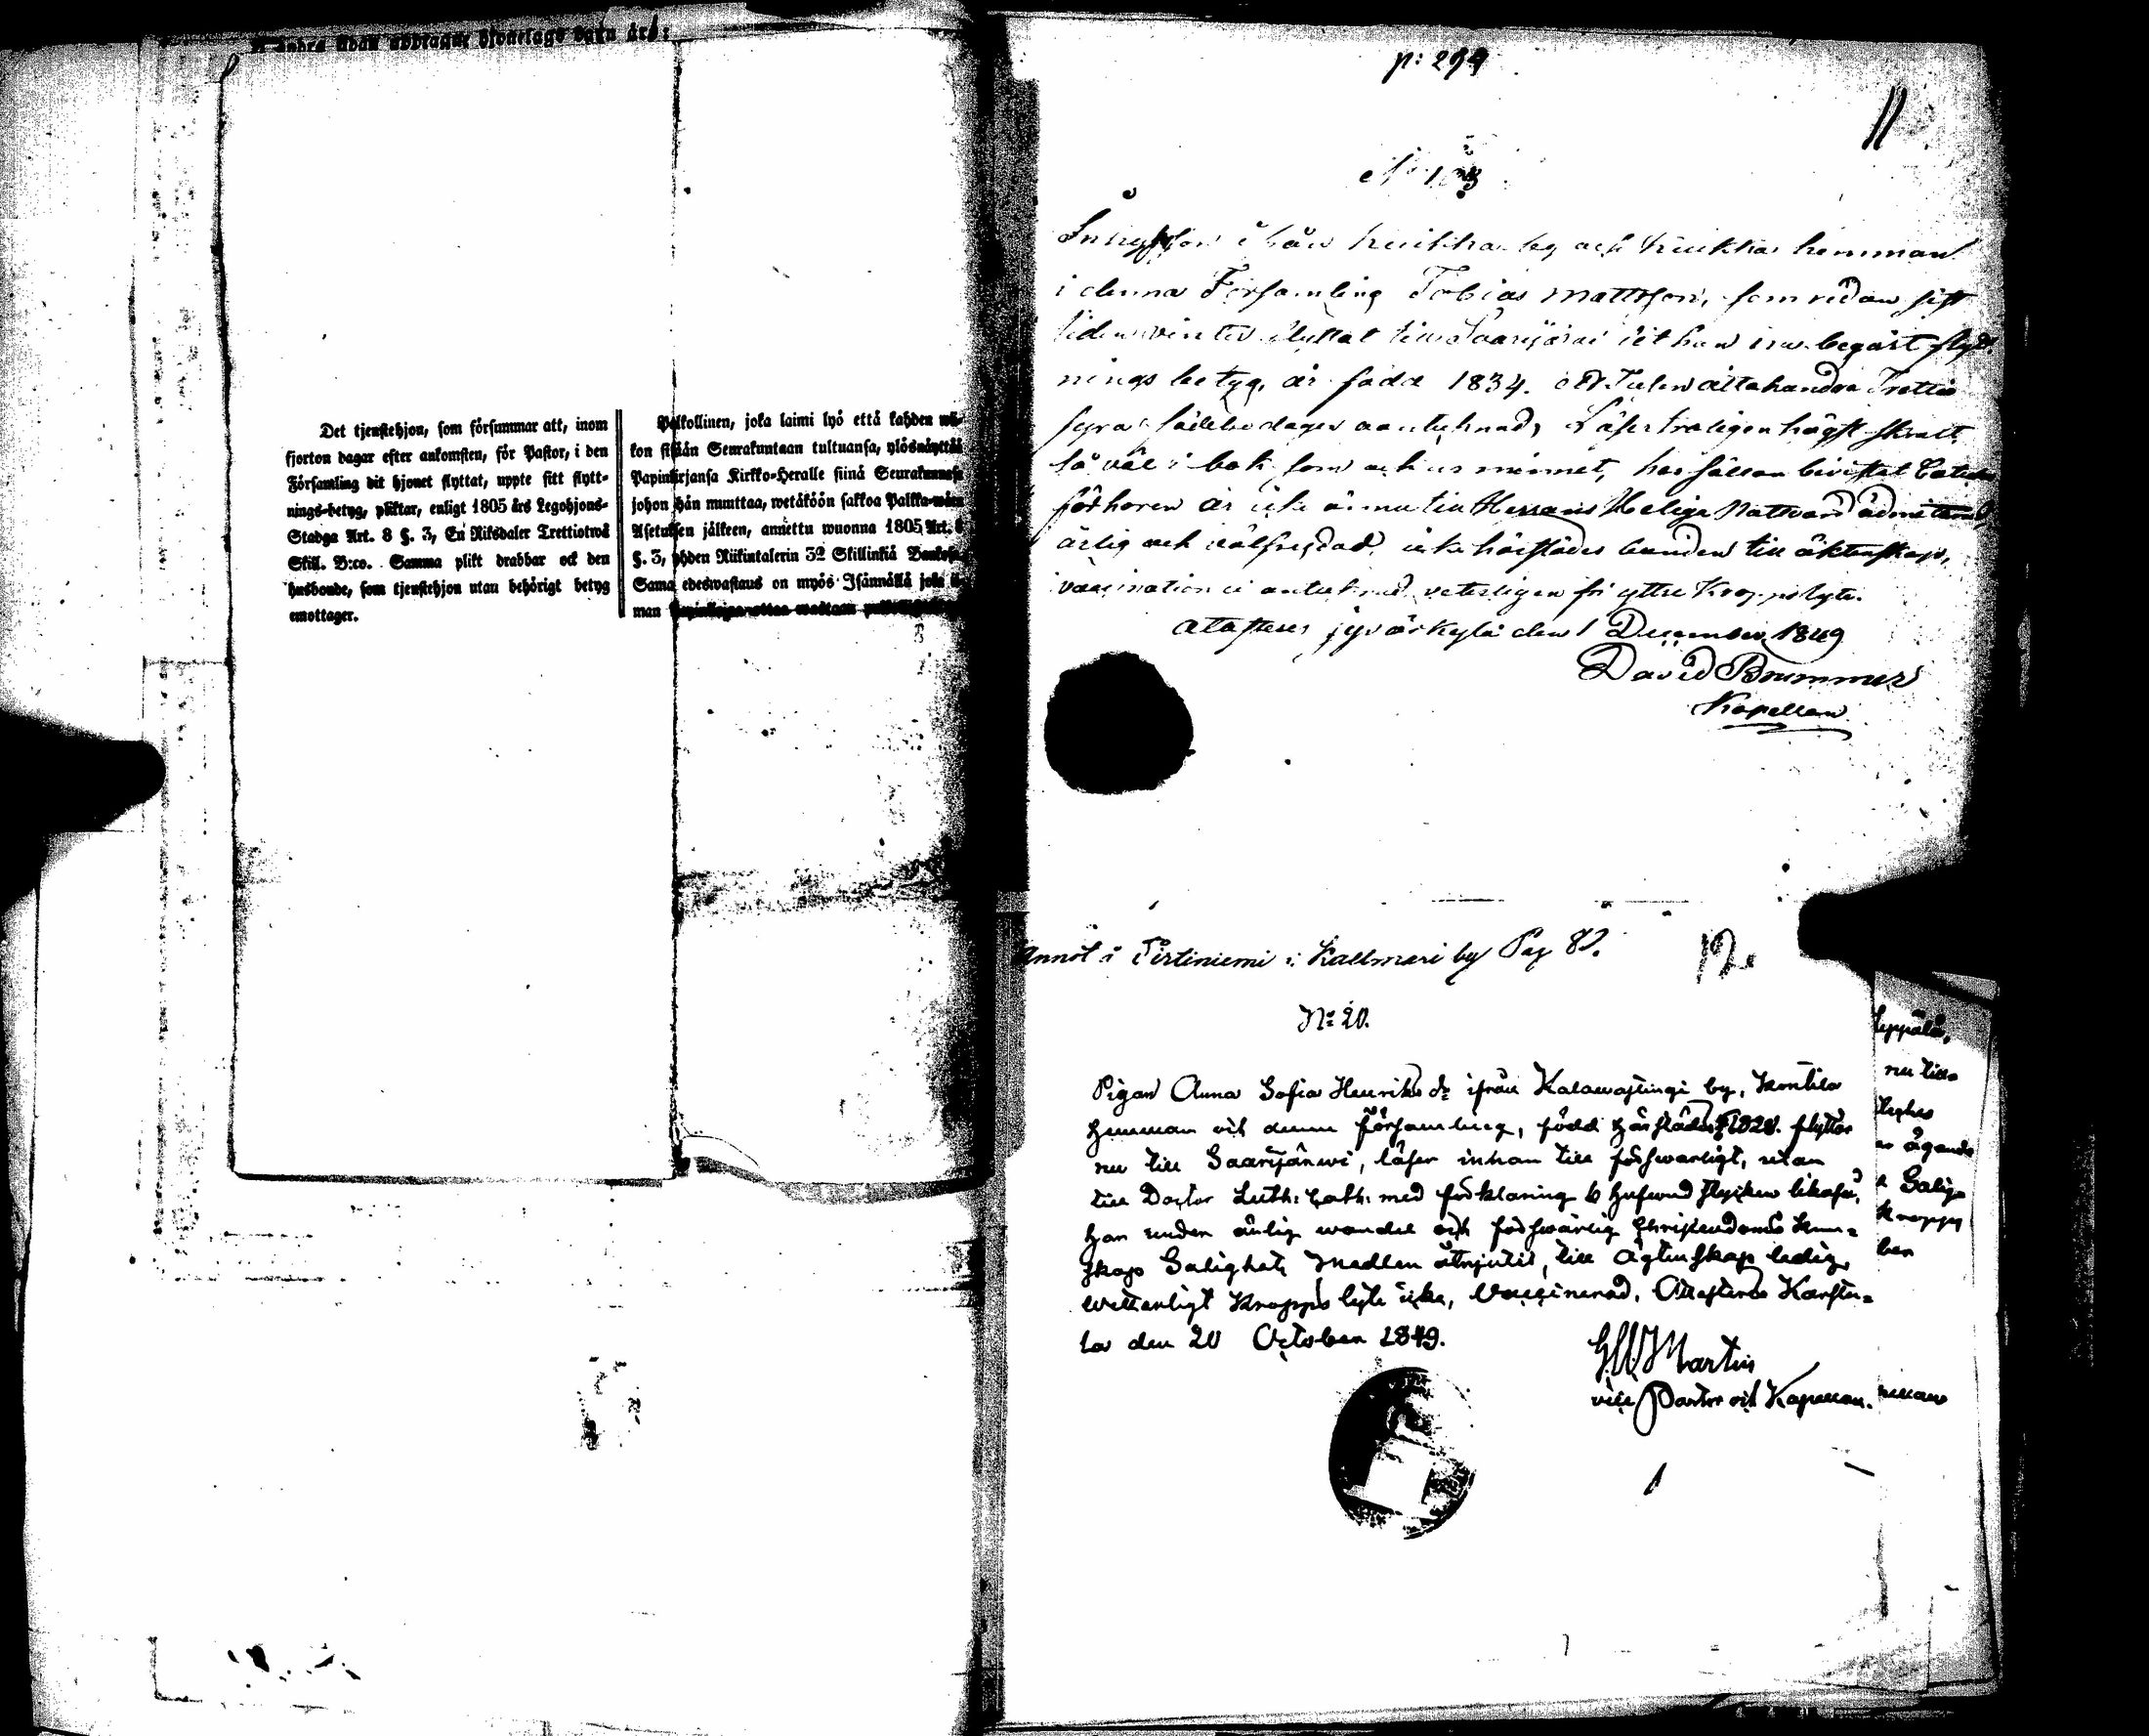 Det tjenstehjon, som försummar att, inom
fjorton dagar efter ankomsten, för Pastor, i den
Församling dit hjonet flyttat, uppte sitt flytt-
nings-betyg, pliktar, enligt 1805 års Legohjons-
Stadga Art. 8 §. 3, En Riksdaler Trettiotwå
Skill. B:co. Samma plikt drabbar ock den
husbonde, som tjenstehjon utan behörigt betyg
emottager.
Palkollinen, joka laimi lyö että kahden wii-
kon sisään Seurakuntaan tultuansa, ylösnäyttää
Papinkirjansa Kirkko-Heralle siinä Seurakunnasa
johon hän muuttaa, wetäköön sakkoa Palkka-wäen
Asetuksen jälkeen, annettu wuonna 1805 Art. 8
§. 3, yhden Riikintalerin 32 Skillinkiä Bankosa.
Sama edeswastaus on myös Isännällä joka
man
p: 294
11
i från huikka by och huikka hemman
i denna Församling Tobias Mattsson, som redan sist
liden vinter flyttat till Saarijärvi dit han nu begärt flytt-
nings betyg, är född 1834. Adertonhundra Trettio
fyra födelsedagen oantecknad, Läser troligen högst svalt
så väl i bok som och ur minnet, har sällan bivistat
förhören är icke ännu till Herrans Heliga Nattvard admitterad
ärlig och välfrejdad, icke härstädes bunden till äktenskap,
vaccination ej antecknad veterligen fri yttre Kroppslyte.
Attesterar Jyväskylä den 1 December 1849
David Brummer
Kapellan
Annot i Pirtiniemi i Kallmari by Pag 82.
12
N:o 20.
Pigan Anna Sofia Henriks dr ifrån Kalawajlingi by,
hemman och denna församling, född härstädes 1828. flyttar
nu till Saarijärwi, läser innan till försvarligt, utan
till Doctor Luth: Cath: med förklaring b husund stycken likaså,
har under ärlig wandel och förswarlig Christendoms Kun-
skap Salighets Medlen åtnjutit, till ägtenskap ledig,
wetterligt Kropps lyte icke, Vaccinerad, Attesteras Karstu-
la den 20 October 1849.
Martin
vice Pastor och Kapellan.
nu till
ägande
Salig
Kropps